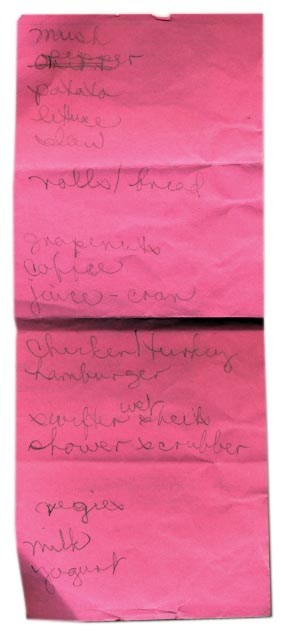 mush
pepper
potato
lettuce
slaw
rolls/bread
grapenuts
coffee
juice - cran
chicken/turkey
hamburger
swifter wet sheets
shower scrubber
vegies
milk
yogurt